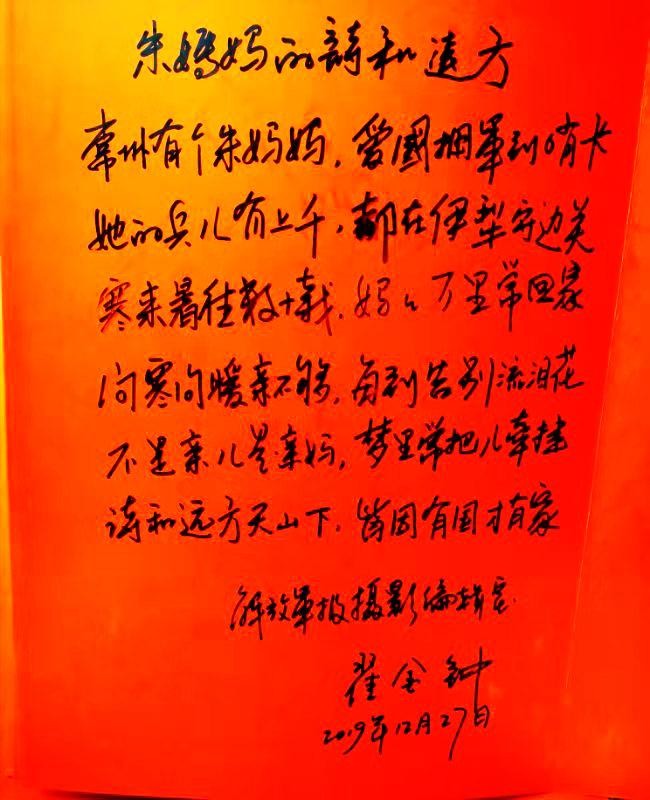 朱媽妈的詩和遠方
常州有个朱妈妈,爱國拥軍到哨卡
她的兵儿有上千,都在伊犁守边关
寒来暑往数十载,妈々万里常回家
问寒问暖亲不够,每到告别流泪花
不是亲儿是亲妈,梦里常把儿牵挂
诗和远方天山下,皆因有国才有家
解放軍报摄影编辑室
翟金钟
2019年12月27日